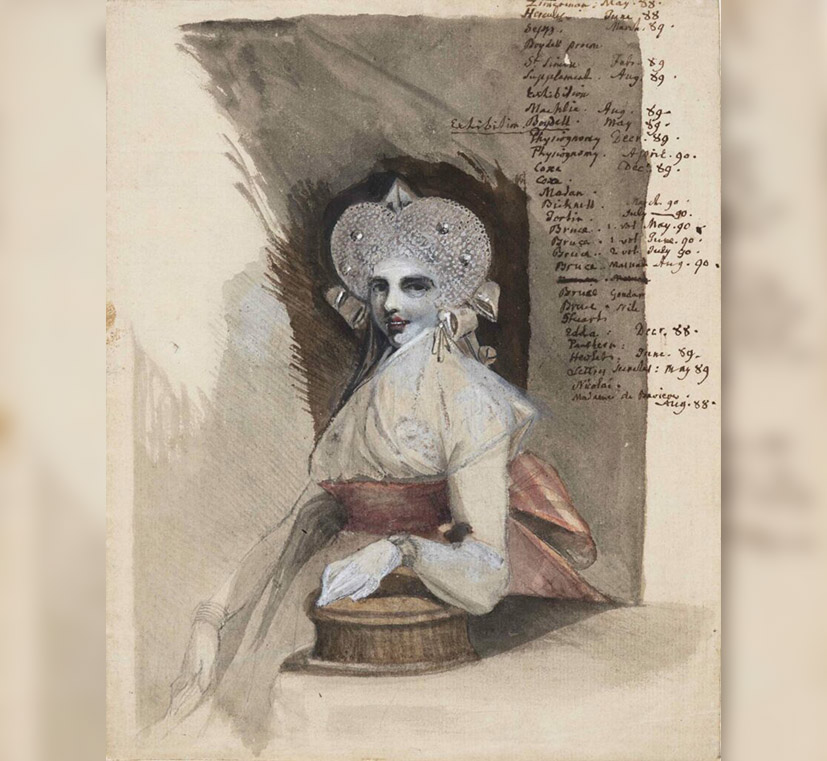 Zimmerman. May. 88
Hercules June, 88
Sepp. March. 89.
Boydell proem
St Simon Febr. 89
Supplement. Aug. 89.
Exhibition
Machlin. Aug. 89.
Exhibition. Boydell. May 89.
Physiognomy Decr. 89.
Physiognomy. April. 90.
Coxe Decr. 89.
Coxe.
Madan.
Bicknell. March. 90.
Jortin. July 90.
Bruce. 1. vol May. 90.
Bruce. 1 vol June. 90.
Bruce. 2 vol July 90.
Bruce. Aug. 90.
Bruce Gondar
Bruce. Nile
Stuarts
Edda. Decr. 88.
Hewlet. June. 89.
May 89
Nicolai.
Madame de
Aug. 88.